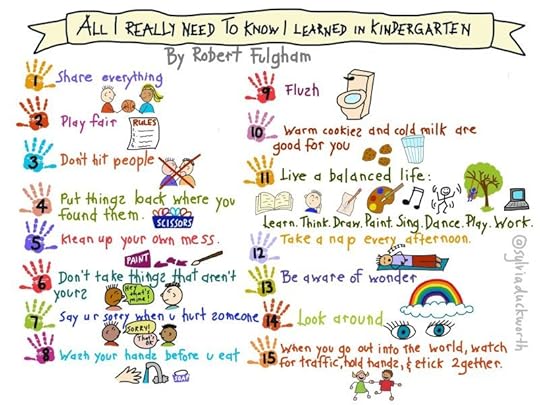 ALL I REALLY NEED TO KNOW I LEARNED IN KINDERGARTEN
By Robert Fulgham
1 Share everything
2 Play fair
RULES
3 Don't hit people
4 Put thingz back where you
found them.
SCISSORS
5 klean up your own mess.
PAINT
6 Don't take thingz that aren't
yourz
Hey that's mine!
7 Say ur sorry when u hurt someone
SORRY!
That's OK
8 Wash your handz before u eat
SOAP
9 Flush
10 Warm cookiez and cold milk are
good for you
11 Live a balanced life:
Learn. Think. Draw. Paint. Sing. Dance. Play. Work.
12 Take a nap every afternoon.
13 Be aware of wonder
14 Look around
15 When you go out into the world, watch
for traffic, hold handz, & stick 2gether.
@sylviaduckworth